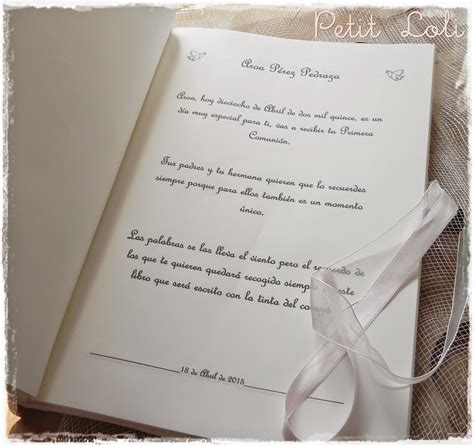 Petit Loli
Aroa Pérez Pedraza
Aroa, hoy dieciocho de Abril de dos mil quince, es un
día muy especial para ti, vas a recibir tu Primera
Comunión.
Tus padres y tu hermana quieren que lo recuerdes
siempre porque para ellos también es un momento
único.
Las palabras se las lleva el viento pero el recuerdo de
los que te quieren quedará recogido este
libro que será escrito con la tinta del
18 de Abril de 2015